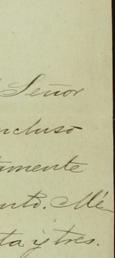 Señor
ncluso
amente
nto. Mé-
ta y tres.